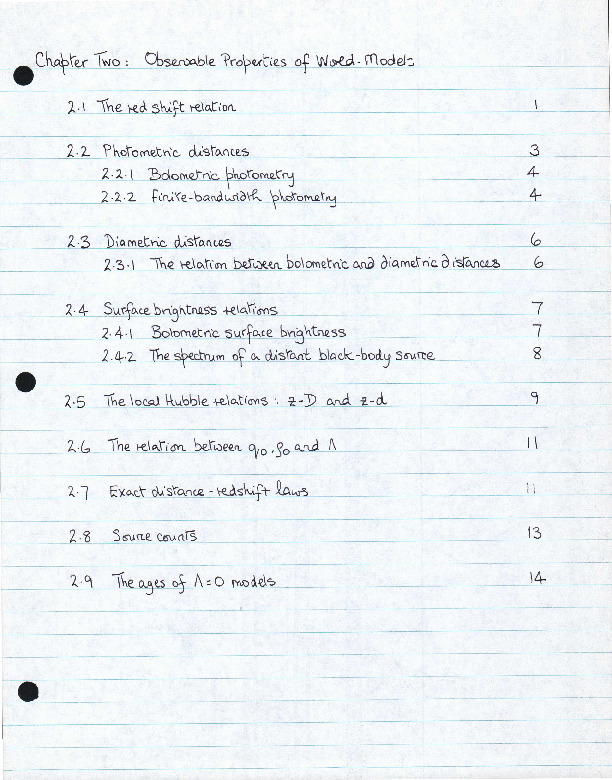 Chapter Two: Observable Properties of World-Models
2.1 The red shift relation 1
2.2 Photometric distances 3
2.2.1 Bolometric photometry 4
2.2.2 Finite-bandwidth photometry 4
2.3 Diametric distances 6
2.3.1 The relation between bolometric and diametric distances 6
2.4 Surface brightness relations 7
2.4.1 Bolometric surface brightness 7
2.4.2 The spectrum of a distant black-body source 8
2.5 The local Hubble relations: z-D and z-d 9
2.6 The relation between q₀, ρ₀ and Λ 11
2.7 Exact distance-redshift laws 11
2.8 Source counts 13
2.9 The ages of Λ=0 models 14